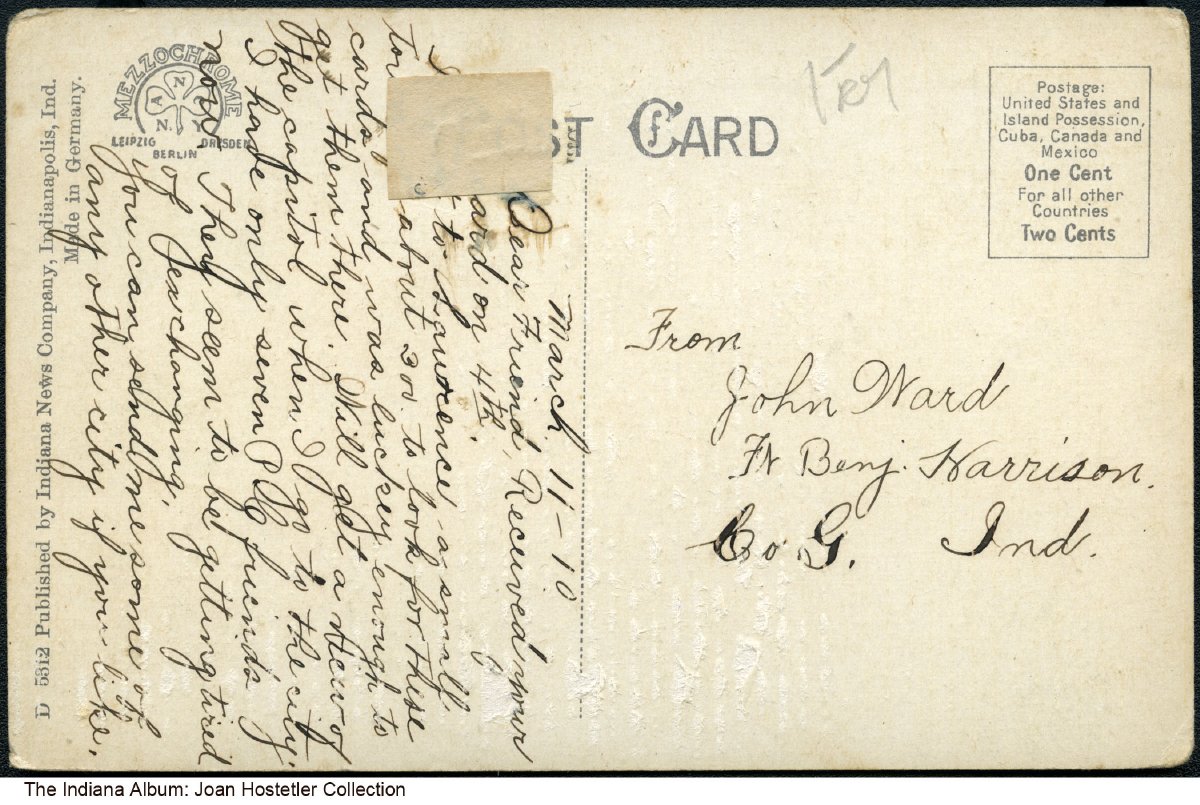 POST CARD
Postage:
United States and
Island Possession,
Cuba, Canada and
Mexico
One Cent
For all other
Countries
Two Cents
MEZZOCHROME
ANN
N.Y.
LEIPZIG DRESDEN
BERLIN
D 5312 Published by Indiana News Company, Indianapolis, Ind.
Made in Germany.
March 11-10
Dear Friend, Received your
ard on 4th.
to Lawrence a small
to about 300. to look for these
cards and was luckey enough to
get them there. Will get a view of
the capitol when I go to the city.
I have only seven P.C. friends
now. They seem to be getting tired
of Jexchanging.
You can send me some of
any other city if you like.
From
John Ward
Ft Benj. Harrison.
Co G. Ind.
The Indiana Album: Joan Hostetler Collection